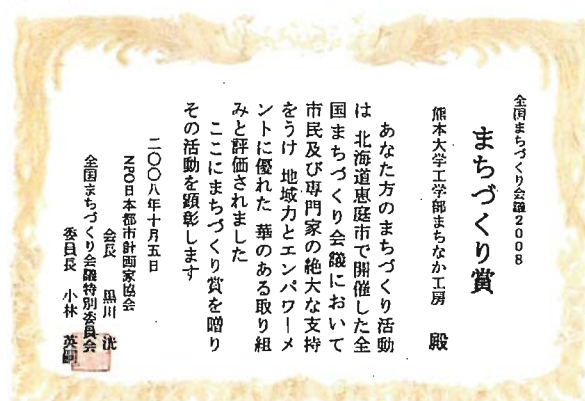 全国まちづくり会議2008
まちづくり賞
熊本大学工学部まちなか工房 殿
あなた方のまちづくり活動
は 北海道恵庭市で開催した全
国まちづくり会議において
市民及び専門家の絶大な支持
をうけ 地域力とエンパワーメ
ントに優れた 華のある取り組
みと評価されました
ここにまちづくり賞を贈り
その活動を顕彰します
二〇〇八年十月五日
NPO日本都市計画家協会
会長 黒川 洸
全国まちづくり会議特別委員会
委員長 小林 英嗣